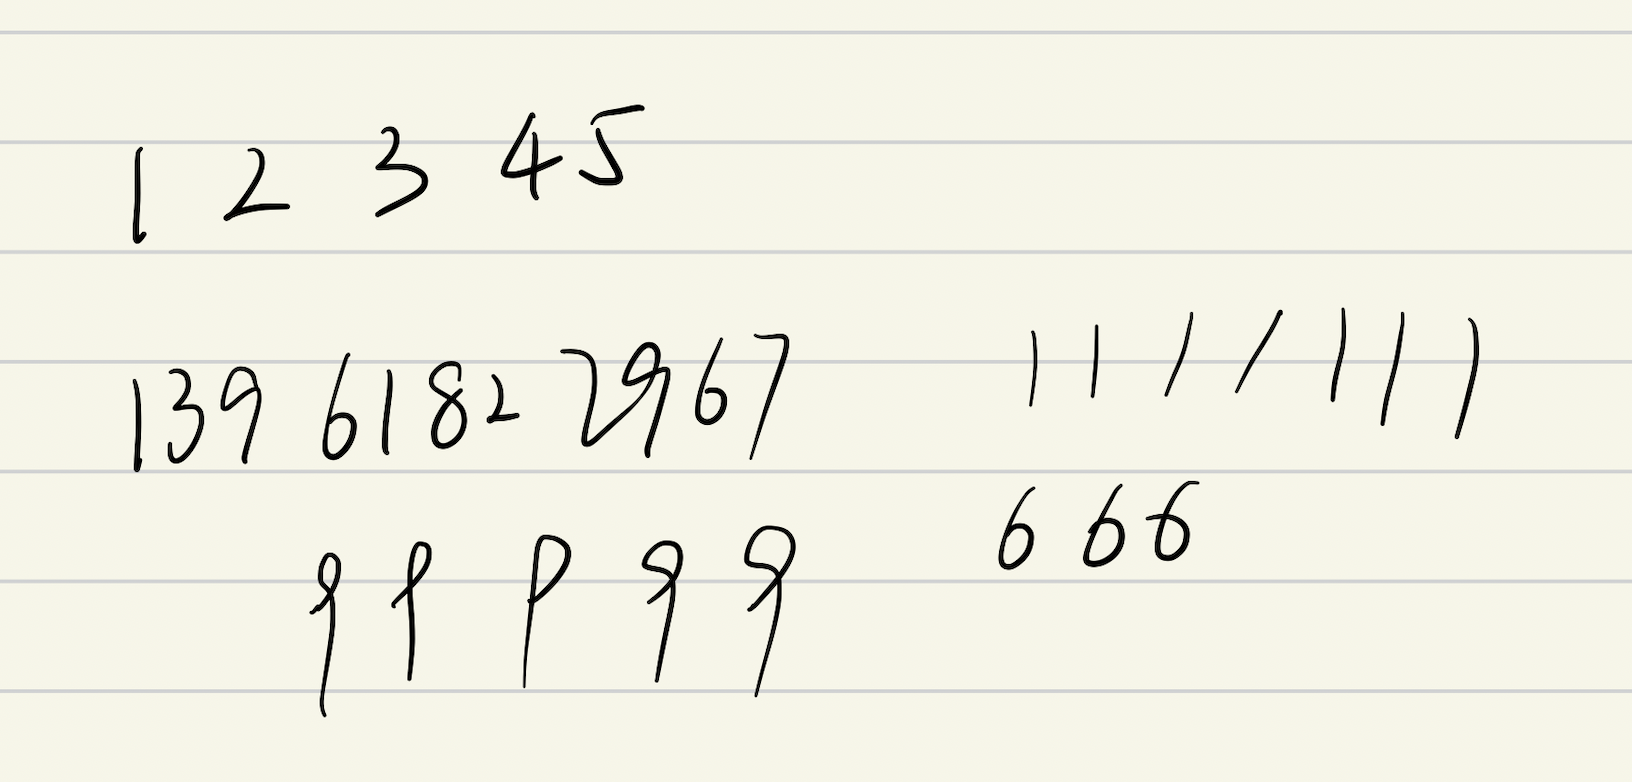 1 2 3 4 5
139 6182 2967
1 1 1 1 1 1 1
6 6 6